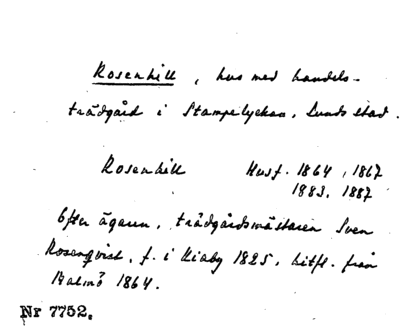 Rosenhill, hus med handels-
trädgård i Stampelyckan, Lunds stad.
Rosenhill Husf. 1864, 1867
1883, 1887
Efter ägaren, trädgårdsmästaren Sven
Rosenqvist, f. i Kiaby 1825, hitfl. från
Malmö 1864.
Nr 7752.